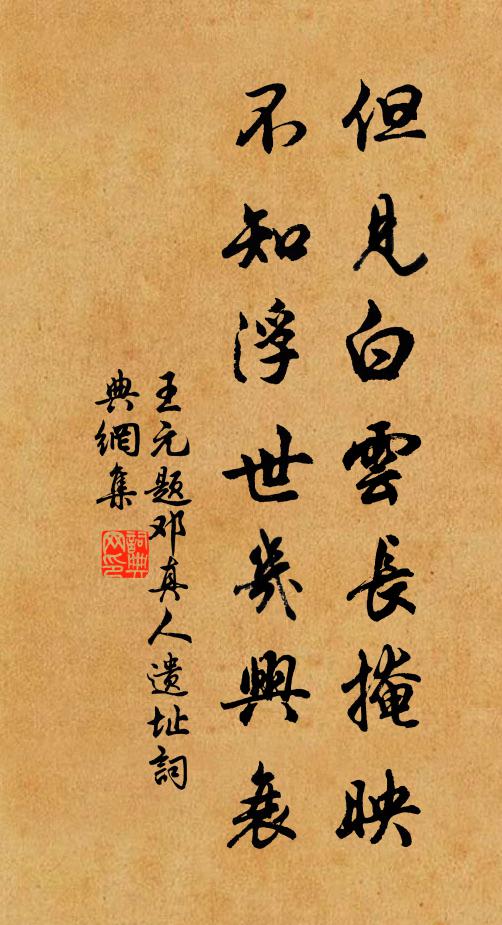 但見白雲長掩映
不知浮世幾興衰
王元题邓真人遗址詞
典網集
詞典
网印